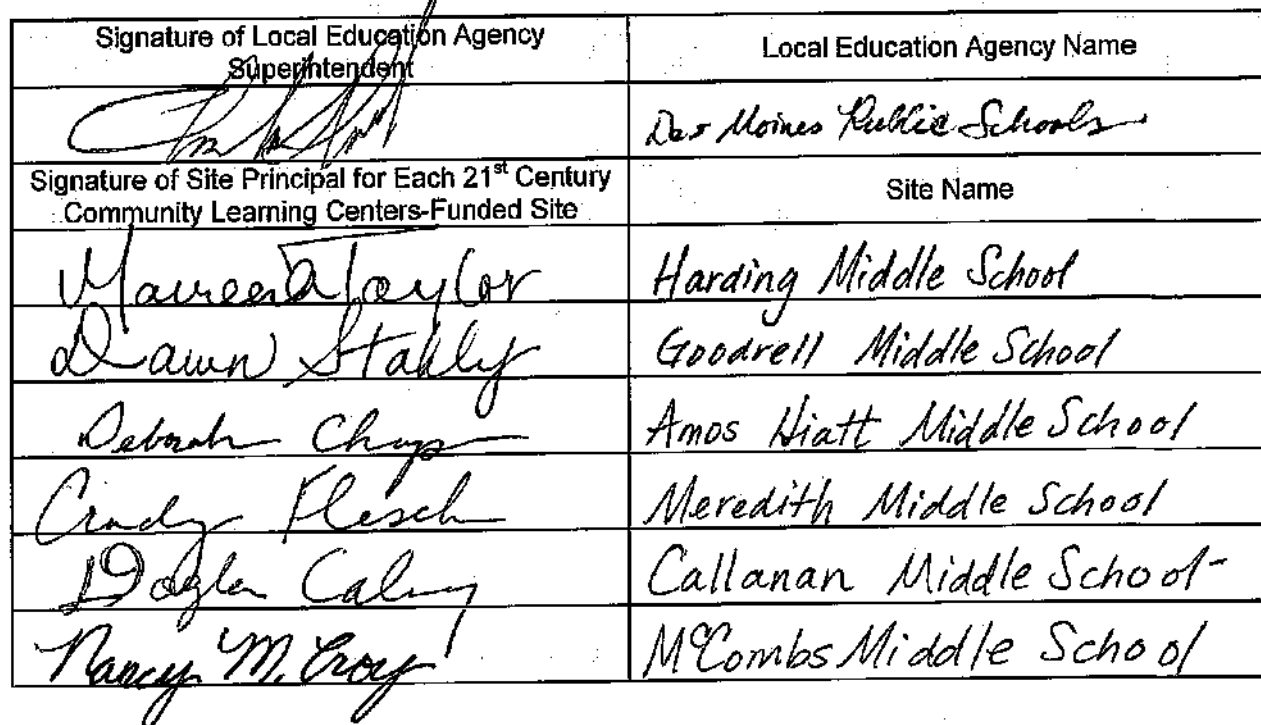 Signature of Local Education Agency
Superintendent
Local Education Agency Name
Des Moines Public Schools
Signature of Site Principal for Each 21st Century
Community Learning Centers-Funded Site
Site Name
Maureen A Taylor
Harding Middle School
Dawn Stahly
Goodrell Middle School
Deborah
Amos Hiatt Middle School
Cindy Flesch
Meredith Middle School
Callanan Middle School
Nancy M. Croy
McCombs Middle School